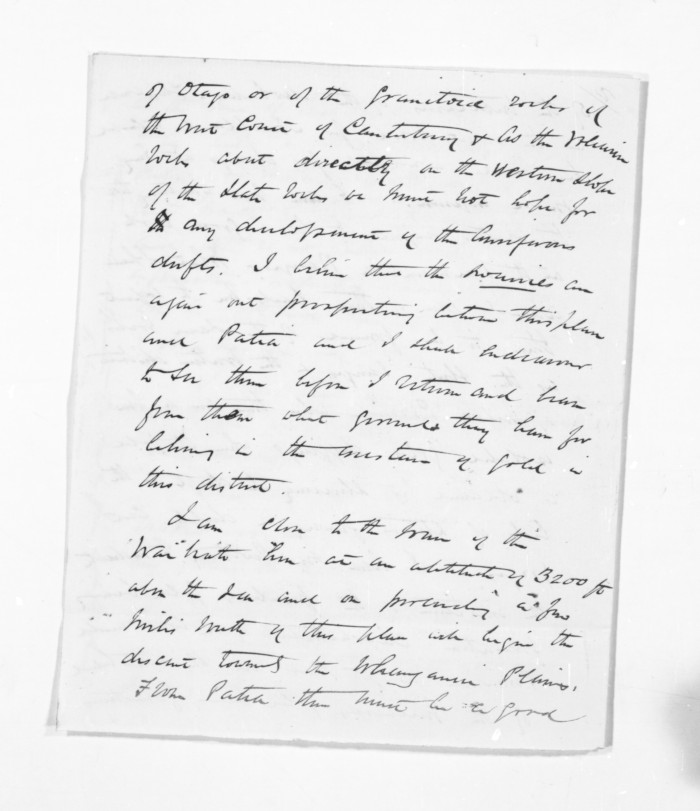 of Otago or of the Granitoid rocks of
the West Coast of Canterbury & as the Volcanic
rocks abut directly on the Western slope
of the Slate rocks we must not hope for
any developement of the Auriferous
drifts. I believe that the are
again out prospecting between this place
and Patea and I shall endeavour
to see them before I return and learn
from them what grounds they have for
believing in the existence of gold in
this district.
I am close to the source of the
at an altitude of 3200 ft
above the sea and on proceeding a few
miles North of this place will begin the
descent towards the Whanganui Plains.
From Patea there must be a good